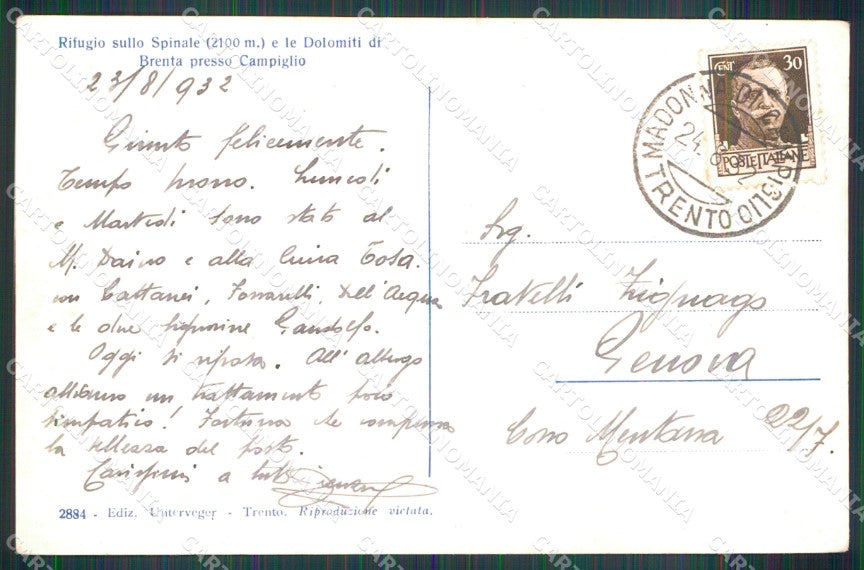 Rifugio sullo Spinale (2100 m.) e le Dolomiti di
Brenta presso Campiglio
23/8/932
Giunto felicemente.
Tempo buono. Lunedì
e Martedì sono stato al
M. Daino e alla Cima Tosa.
con Cattanei, Dell'Acqua
e le due signorine Gandolfo.
Oggi si riposa. All'albergo
abbiamo un trattamento poco
simpatico! Fortuna che compensa
la bellezza del posto.
Carissimi a tutti
2884 - Ediz. Unterveger - Trento. Riproduzione vietata.
CENT 30
POSTE ITALIANE
MADONNA DI CAMPIGLIO
TRENTO
24.8.32
Sig.
Fratelli Zignago
Genova
Corso Mentana 22/7.
CARTOLINOMANIA